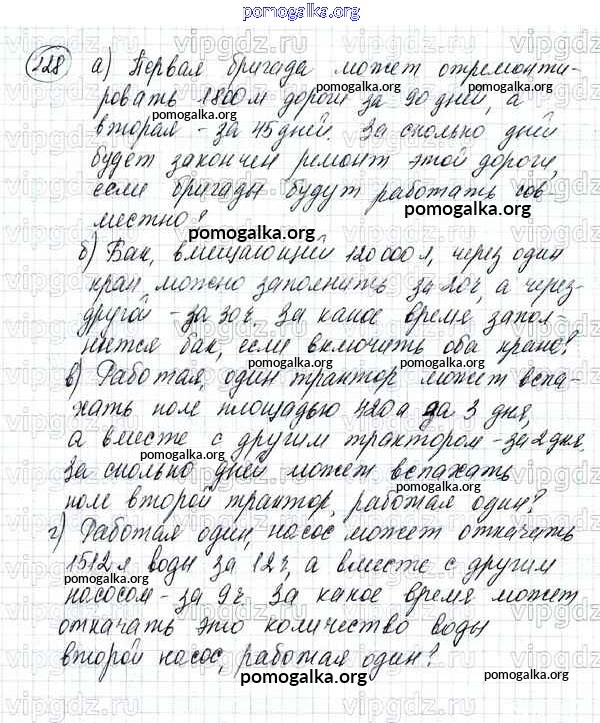 pomogalka.org
228 а) Первая бригада может отремонти-
ровать 1800 м дороги за 90 дней, а
вторая - за 45 дней. За сколько дней
будет закончен ремонт этой дороги,
если бригады будут работать сов-
местно?
б) Бак, вмещающий 120000 л, через один
кран можно заполнить за 20 ч, а через
другой - за 30 ч. За какое время запол-
нится бак, если включить оба крана?
в) Работая, один трактор может вспа-
хать поле площадью 420 а за 3 дня,
а вместе с другим трактором - за 2 дня.
За сколько дней может вспахать
поле второй трактор, работая один?
г) Работая один, насос может откачать
1512 л воды за 12 ч, а вместе с другим
насосом - за 9 ч. За какое время может
откачать это количество воды
второй насос, работая один?
pomogalka.org